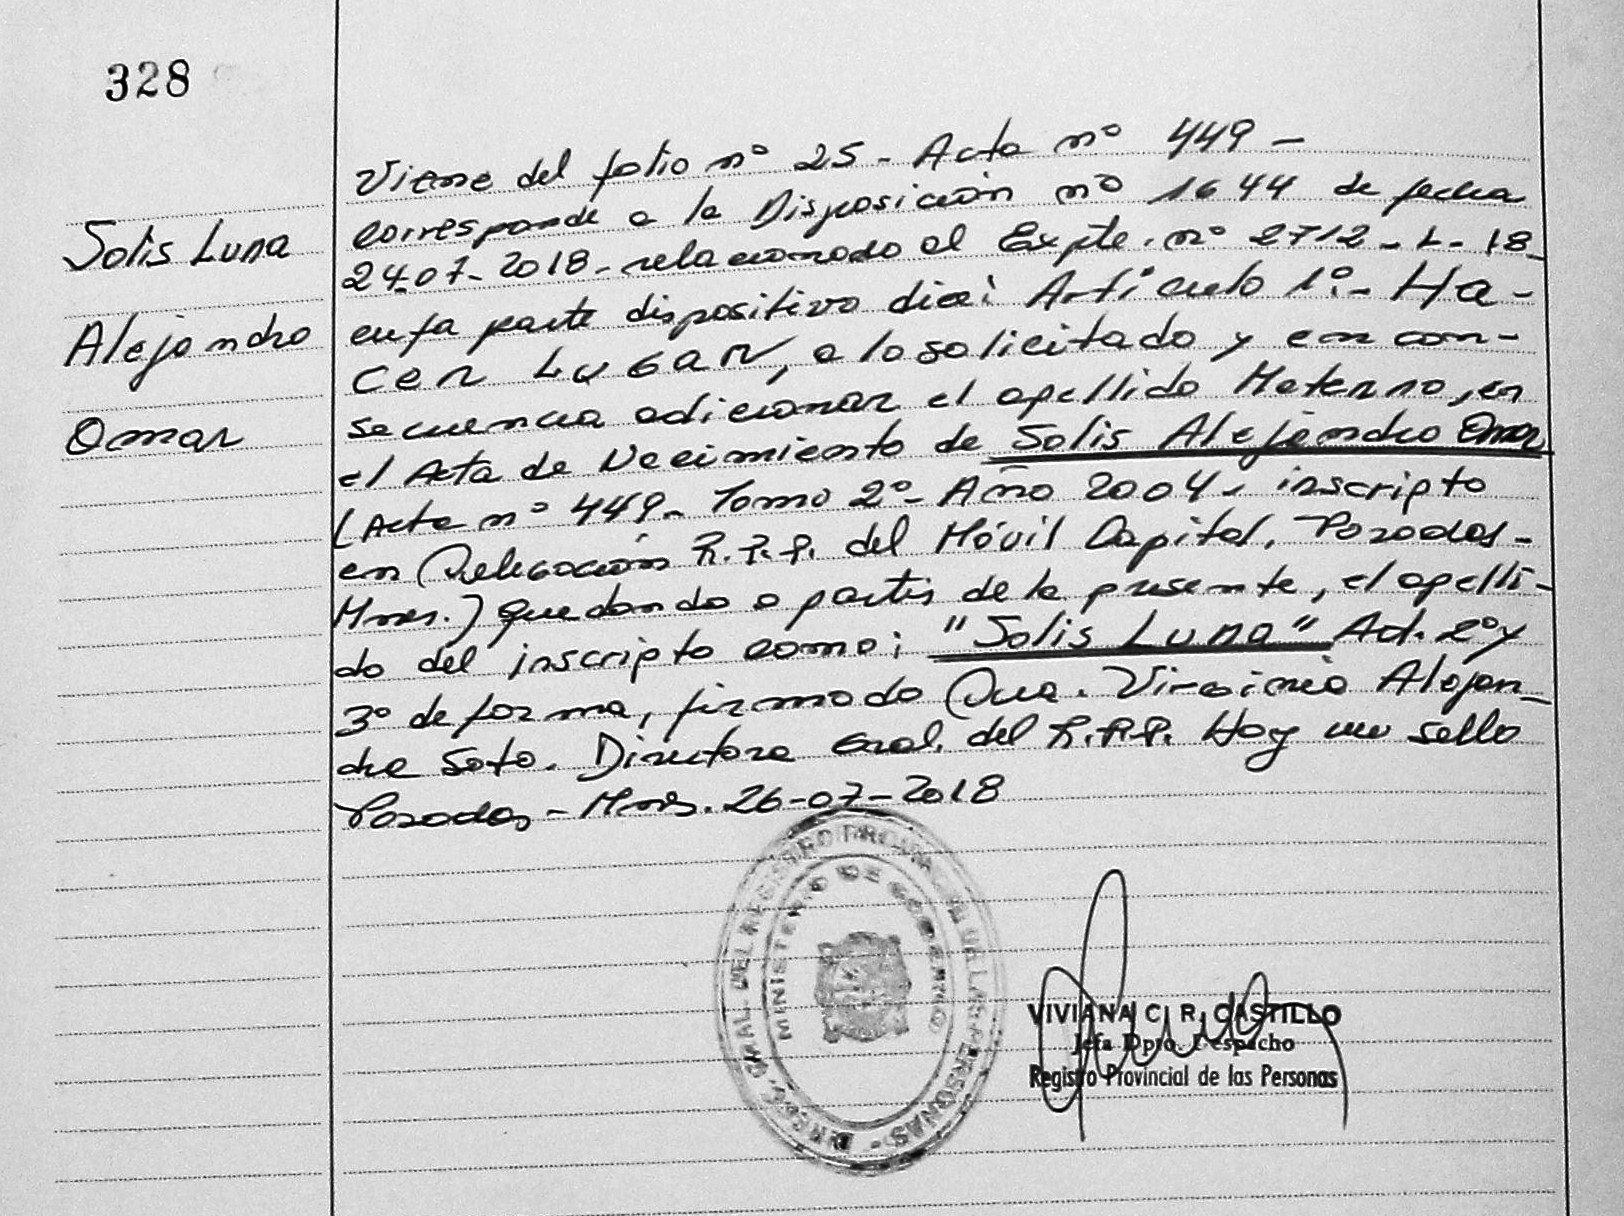 328
Solis Luna
Alejandro
Omar
Viene del folio nº 25 - Acta nº 449 -
corresponde a la Disposición nº 1644 de fecha
24-07-2018 - relacionado al Expte. nº 2712 - L - 18
cuya parte dispositiva dice: Artículo 1º.- Ha-
cer Lugar, a lo solicitado y en con-
secuencia adicionar el apellido Materno, en
el Acta de Nacimiento de Solis Alejandro Omar
(Acta nº 449 - Tomo 2º - Año 2004 - inscripto
en Delegación R.P.P. del Móvil Capital, Posadas -
Mnes.) quedando a partir de la presente, el apelli-
do del inscripto como: "Solis Luna" Art. 2º y
3º de forma, firmado Dra. Virginia Alejan-
dra Soto. Directora Gral. del R.P.P. Hay un sello
Posadas - Mnes. 26-07-2018
DIREC. GRAL. DEL REGISTRO PROVINCIAL DE LAS PERSONAS -
MINISTERIO DE GOBIERNO
VIVIANA C. R. CASTILLO
Jefa Dpto. Despacho
Registro Provincial de las Personas